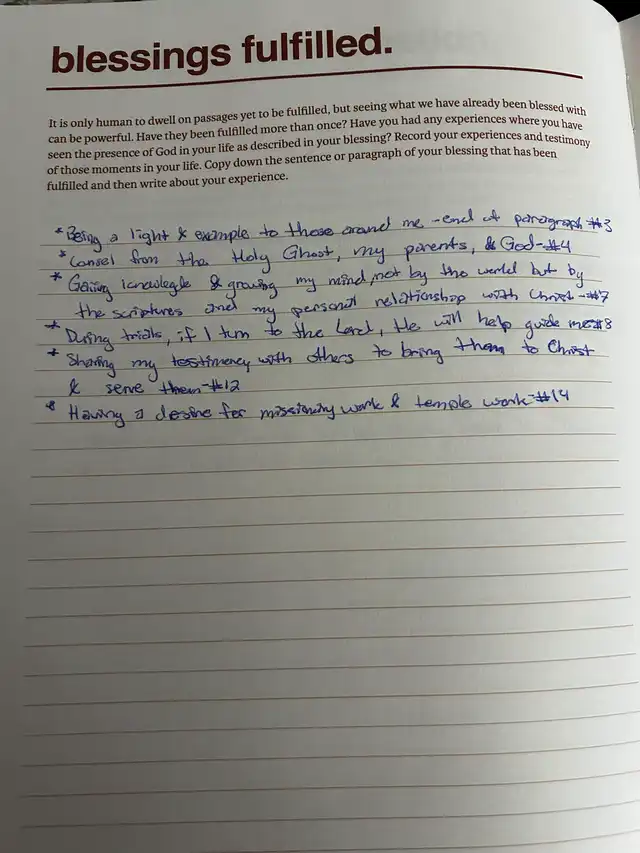 blessings fulfilled.
It is only human to dwell on passages yet to be fulfilled, but seeing what we have already been blessed with
can be powerful. Have they been fulfilled more than once? Have you had any experiences where you have
seen the presence of God in your life as described in your blessing? Record your experiences and testimony
of those moments in your life. Copy down the sentence or paragraph of your blessing that has been
fulfilled and then write about your experience.
*Being a light & example to those around me -end of paragraph #3
*Consel from the Holy Ghost, my parents, & God-#4
* Gaining knowlegle & growing my mind, not by the world but by
the scriptures and my personal relationship with Christ-#7
* During trials, if I turn to the Lord, He will help guide me#8
* Sharing my testimency with others to bring them to Christ
& serve them-#12
* Having a desire for missionary work & temple work-#14